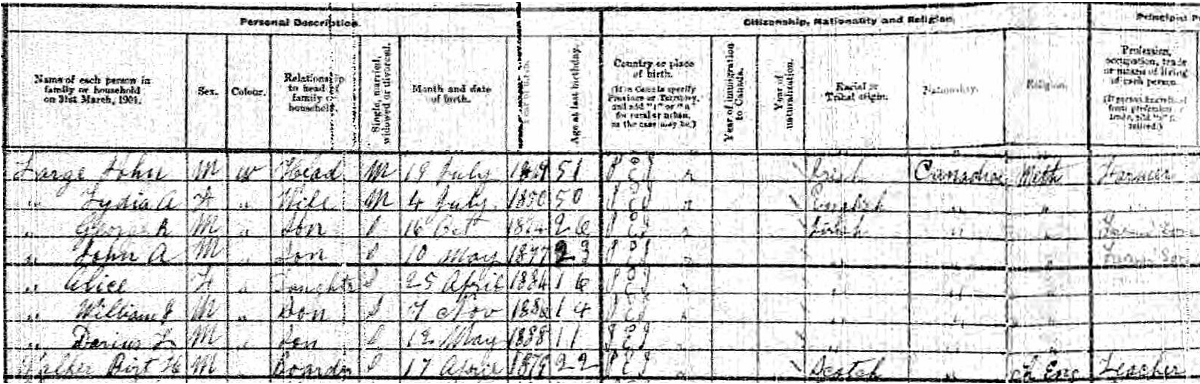 Personal Description. Citizenship, Nationality and Religion. Principal
Name of each person in family or household on 31st March, 1901. Sex. Colour. Relationship to head of family or household. Single, married, widowed or divorced. Month and date of birth. Age at last birthday. Country or place of birth. (If in Canada specify Province or Territory, and add "r" or "u" for rural or urban, as the case may be.) Year of immigration to Canada. Year of naturalization. Racial or Tribal origin. Nationality. Religion. Profession, occupation, trade or means of living of each person.
John M w Head M 19 July 1849 51 P E I r Irish Canadian Meth Farmer
" Lydia A F " Wife M 4 July 1850 50 P E I r English " "
" George R M " Son S 16 Oct 26 P E I r Irish " "
" John A M " Son S 10 May 1877 23 P E I " "
" Alice F " S 25 April 1884 16 P E I " "
" William J M " Son S 7 Nov 1886 14 P E I " "
" M " Son S May 11 P E I " "
Walker M " Boarder S 17 April 22 P E I Scotch " Ch Eng Teacher